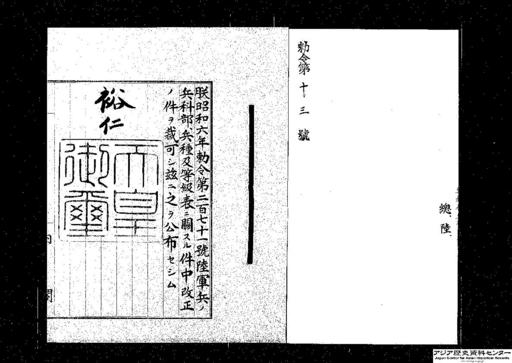 勅令第十三號
總陸
朕昭和六年勅令第二百七十一號陸軍兵ノ
兵科部兵種及等級表ニ關スル件中改正
ノ件ヲ裁可シ玆ニ之ヲ公布セシム
裕仁
天皇
御璽
内閣
アジア歴史資料センター
Japan Center for Asian Historical Records